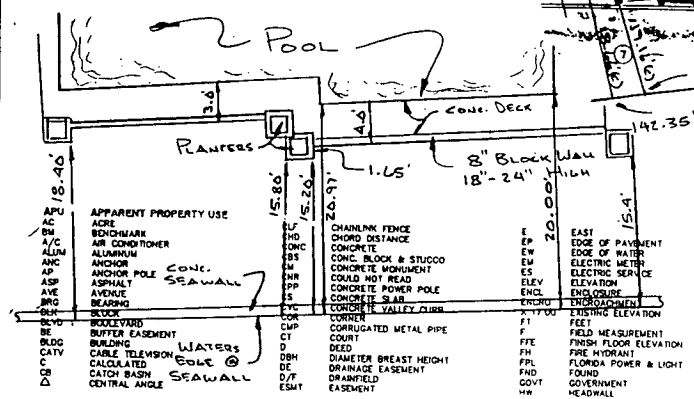 POOL
7
3.0'
4.0'
CONC. DECK
142.35'
PLANTERS
1.65'
8" BLOCK WALL
18"-24" HIGH
18.40'
15.80'
15.20'
20.97'
20.00'
15.4'
APU APPARENT PROPERTY USE
AC ACRE
BM BENCHMARK
A/C AIR CONDITIONER
ALUM ALUMINUM
ANC ANCHOR
AP ANCHOR POLE
ASP ASPHALT
AVE AVENUE
BRG BEARING
BLK BLOCK
BLVD BOULEVARD
BE BUFFER EASEMENT
BLDG BUILDING
CATV CABLE TELEVISION
C CALCULATED
CB CATCH BASIN
Δ CENTRAL ANGLE
CONC. SEAWALL
WATERS EDGE @ SEAWALL
CLF CHAINLINK FENCE
CHD CHORD DISTANCE
CONC CONCRETE
CBS CONC. BLOCK & STUCCO
CM CONCRETE MONUMENT
CNR COULD NOT READ
CPP CONCRETE POWER POLE
CS CONCRETE SLAB
CVC CONCRETE VALLEY CURB
COR CORNER
CMP CORRUGATED METAL PIPE
CT COURT
D DEED
DBH DIAMETER BREAST HEIGHT
DE DRAINAGE EASEMENT
D/F DRAINFIELD
ESMT EASEMENT
E EAST
EP EDGE OF PAVEMENT
EW EDGE OF WATER
EM ELECTRIC METER
ES ELECTRIC SERVICE
ELEV ELEVATION
ENCL ENCLOSURE
ENCRO ENCROACHMENT
X 17.00 EXISTING ELEVATION
FT FEET
F FIELD MEASUREMENT
FFE FINISH FLOOR ELEVATION
FH FIRE HYDRANT
FPL FLORIDA POWER & LIGHT
FND FOUND
GOVT GOVERNMENT
HW HEADWALL